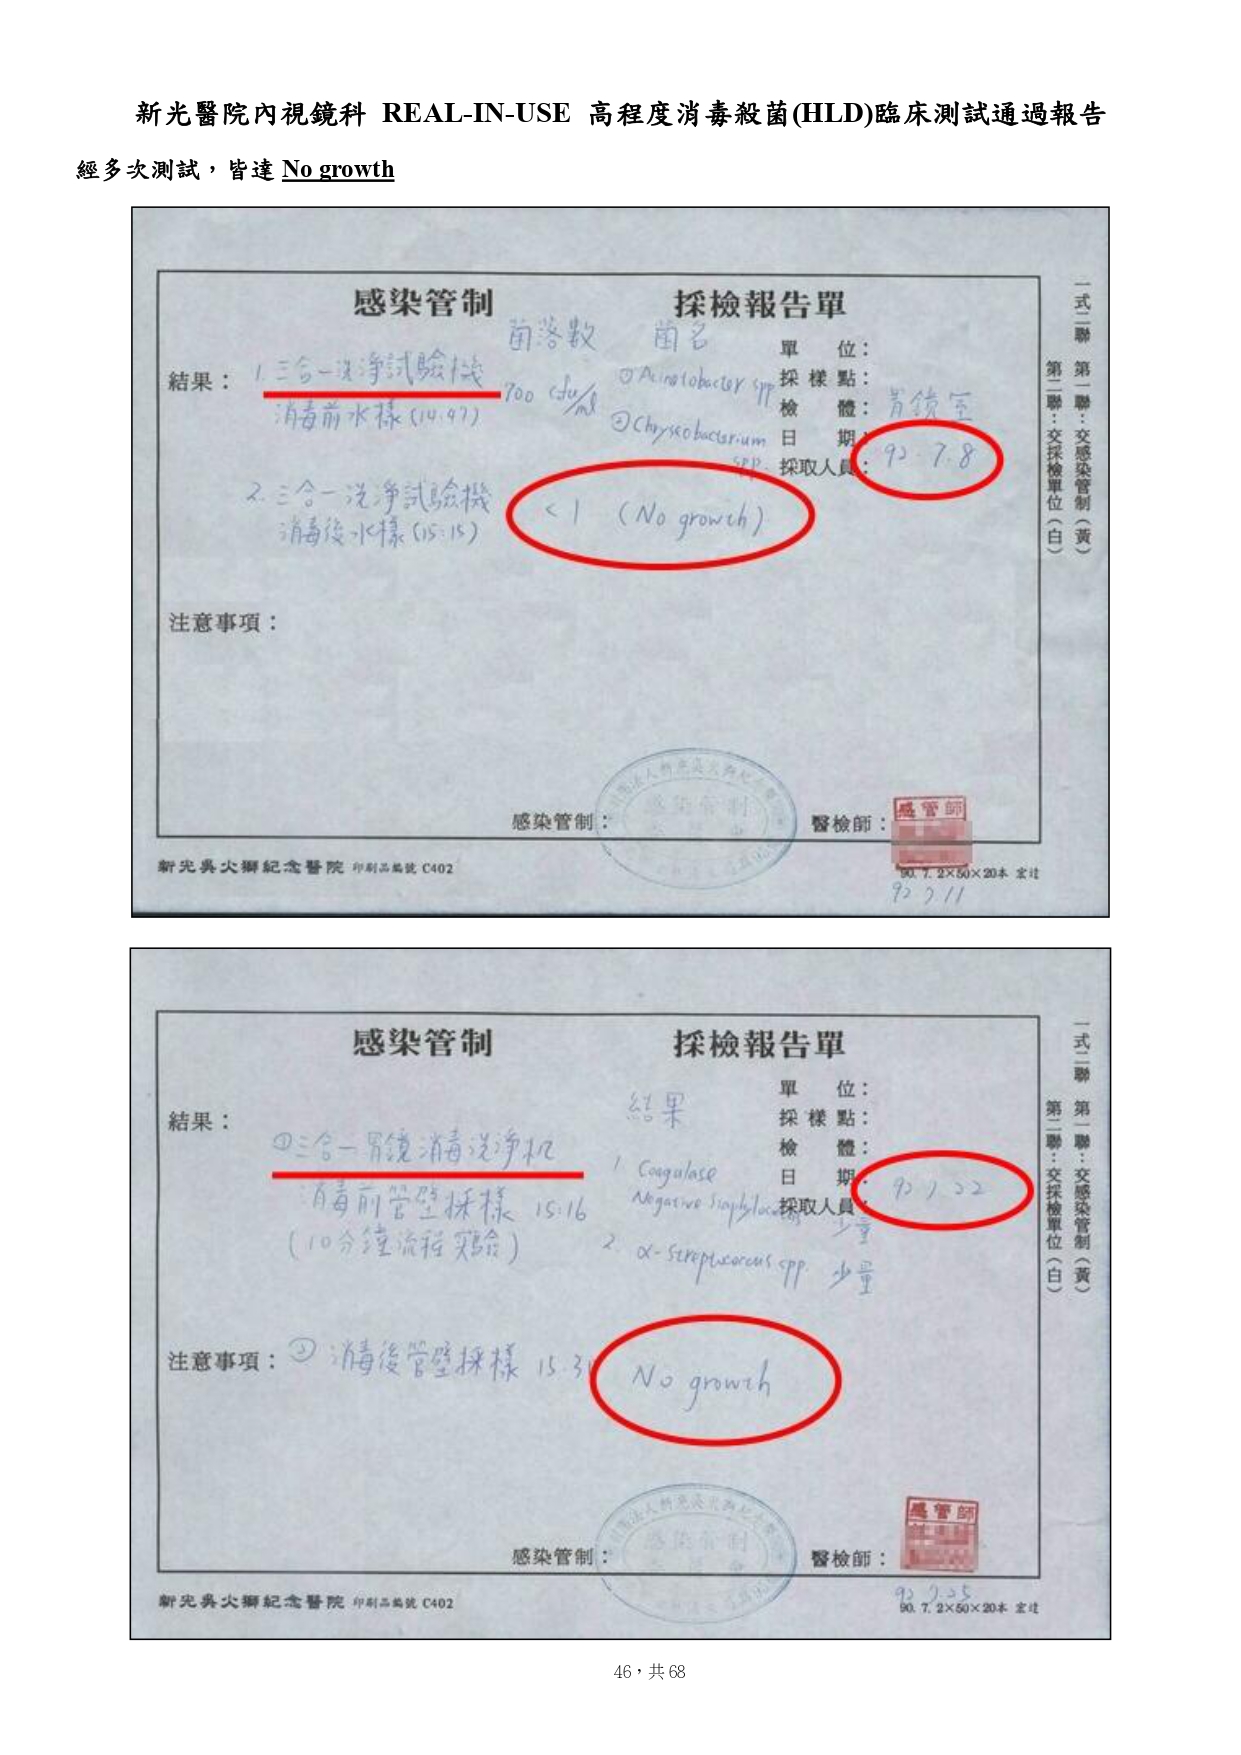 新光醫院內視鏡科 REAL-IN-USE 高程度消毒殺菌(HLD)臨床測試通過報告
經多次測試，皆達 No growth
感染管制 採檢報告單
菌落數 菌名
單 位：
結果： 1. 三合一洗淨試驗機 700 cfu/ml ① Acinetobacter spp
採樣點：
消毒前水樣 (14:47) ② Chryseobacterium spp.
檢 體： 胃鏡室
日 期： 92.7.8
採取人員：
2. 三合一洗淨試驗機 <1 (No growth)
消毒後水樣 (15:15)
注意事項：
感染管制： 感染管制
醫檢師： 感管師
新光吳火獅紀念醫院 印刷品編號 C402 90. 7. 2×50×20本 宏達
92.7.11
一式二聯 第一聯：交感染管制（黃）
第二聯：交採檢單位（白）
感染管制 採檢報告單
結果
單 位：
結果：
採樣點：
① 三合一胃鏡消毒洗淨机
檢 體：
1. Coagulase
日 期： 92.7.22
消毒前管壁採樣 15:16 Negative Staphylococcus 少量
採取人員：
(10分鐘流程實驗) 2. α-Streptococcus spp. 少量
注意事項： ② 消毒後管壁採樣 No growth
感染管制： 感染管制
醫檢師： 感管師
92.7.25
新光吳火獅紀念醫院 印刷品編號 C402 90. 7. 2×50×20本 宏達
一式二聯 第一聯：交感染管制（黃）
第二聯：交採檢單位（白）
46，共 68